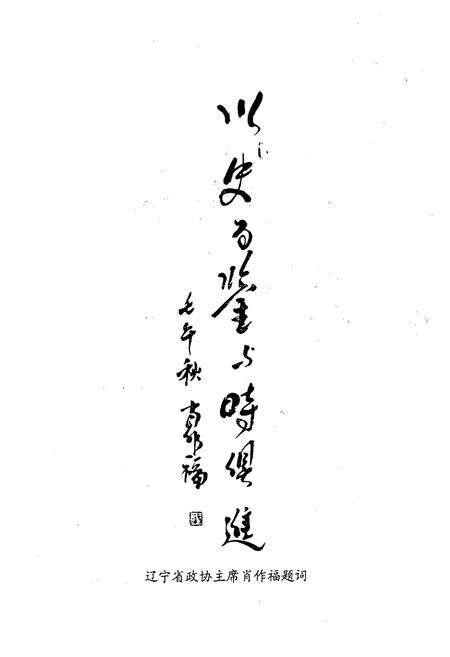 以史为鉴与時俱進
壬午秋 肖作福
辽宁省政协主席肖作福题词